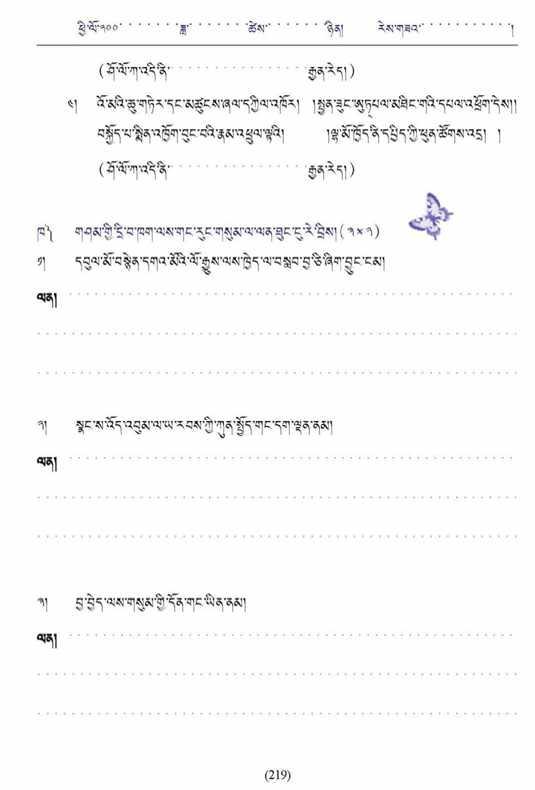 ཕྱི་ལོ་༢༠༠ ཟླ་ ཚེས་ ཉིན། རེས་གཟའ་ །
(ཤོ་ལོ་ཀ་འདི་ནི་ རྒྱན་རེད།)
༤། འོ་མའི་ཆུ་གཏེར་དང་མཚུངས་ཞལ་དཀྱིལ་འཁོར། །སྤྱན་ཟུང་ཨུཏྤལ་མཐིང་གའི་དཔལ་འཕྲོག་དེས།།
བསྐྱོད་པ་སྨིན་འཁྱོག་བུང་བའི་རྣམ་འཕྲུལ་ལྟའི། །ལྷ་མོ་ཁྱོད་ནི་དཔྱིད་ཀྱི་ཕུན་ཚོགས་འདྲ། །
(ཤོ་ལོ་ཀ་འདི་ནི་ རྒྱན་རེད།)
ཁ༽ གཤམ་གྱི་དྲི་བ་ཁག་ལས་གང་རུང་གསུམ་ལ་ལན་ཐུང་ངུ་རེ་བྲིས། (༣×༣)
༡། དབུལ་མོ་བསྙེན་དགའ་མོའི་ལོ་རྒྱུས་ལས་ཁྱེད་ལ་བསླབ་བྱ་ཅི་ཞིག་བྱུང་ངམ།
ལན།
༢། སྣང་ས་འོད་འབུམ་ལ་ཡ་རབས་ཀྱི་ཀུན་སྤྱོད་གང་དག་ལྡན་ནམ།
ལན།
༣། བྱ་བྱེད་ལས་གསུམ་གྱི་དོན་གང་ཡིན་ནམ།
ལན།
(219)